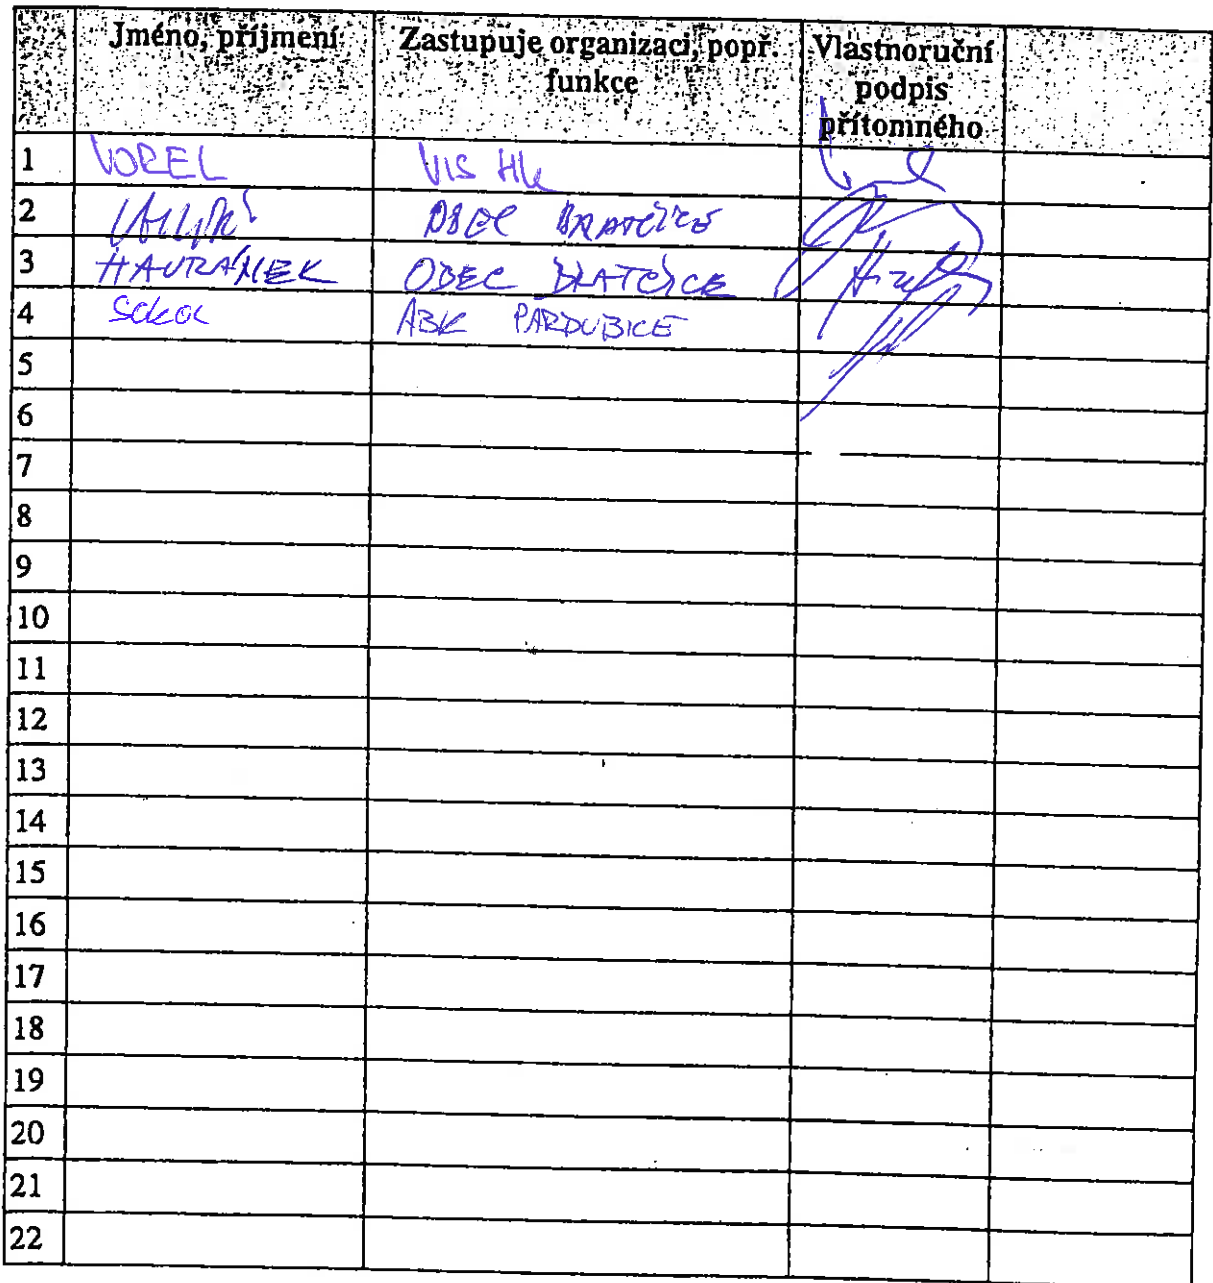 Jméno, příjmení Zastupuje organizaci, popř. funkce Vlastnoruční podpis přítomného
1 VOREL VIS HK
2 OBEC BRATČICE
3 HAVRÁNEK OBEC BRATČICE
4 SOKOL ABK PARDUBICE
5
6
7
8
9
10
11
12
13
14
15
16
17
18
19
20
21
22